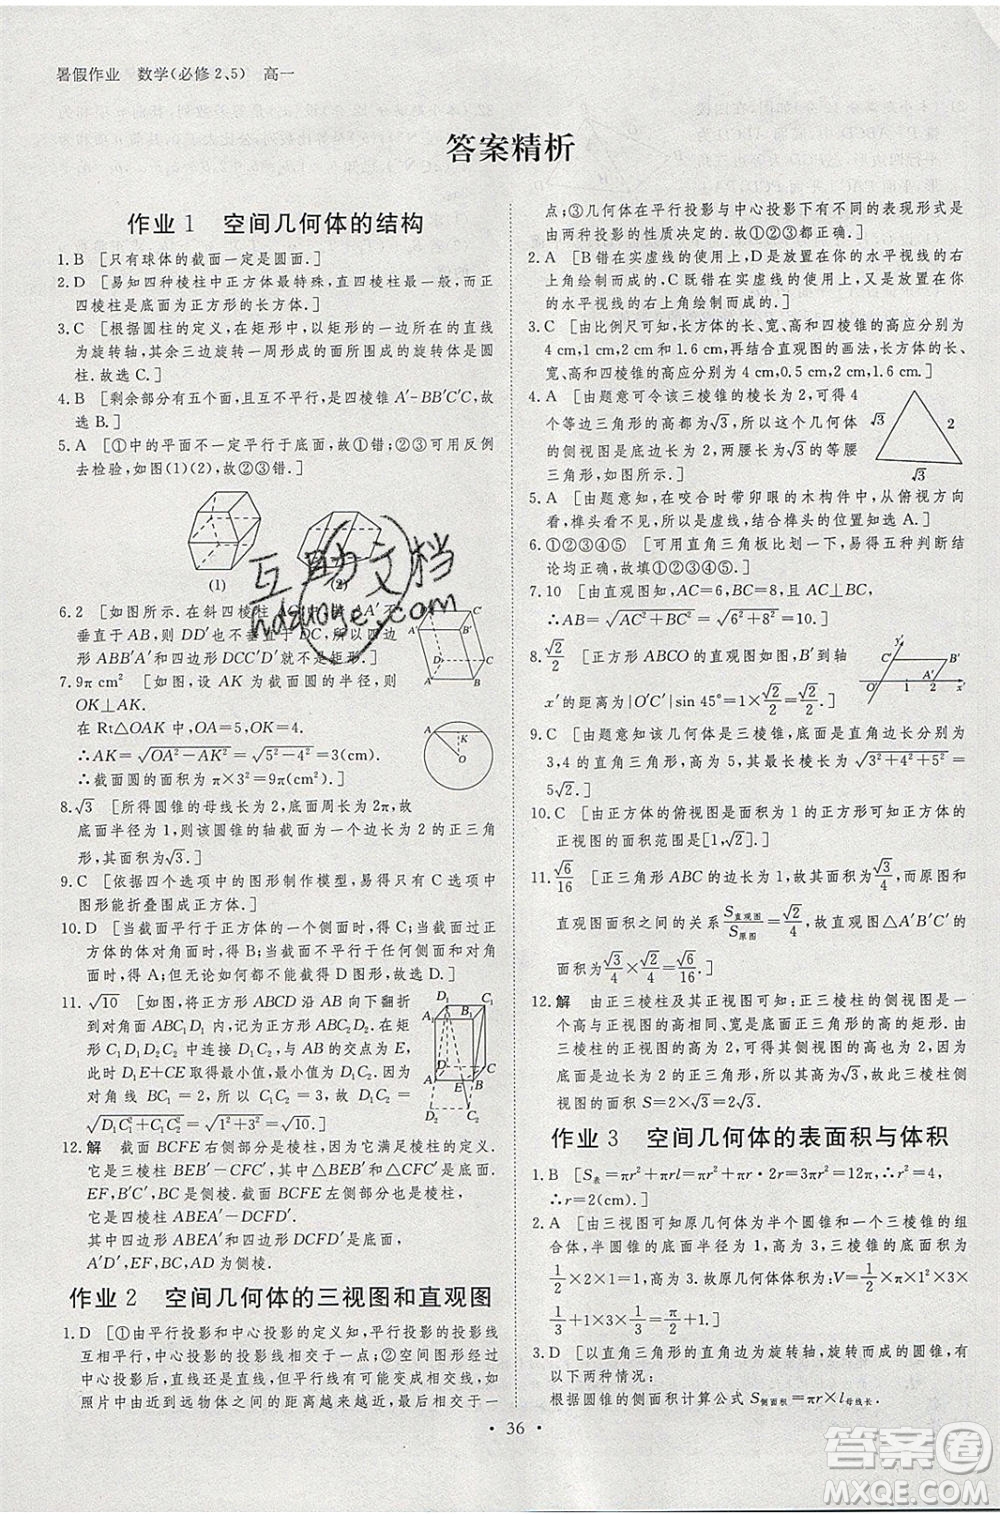 暑假作业　数学(必修2、5)　高一
答案精析
作业 1　空间几何体的结构
1. B　[只有球体的截面一定是圆面.]
2. D　[易知四种棱柱中正方体最特殊，直四棱柱最一般，而正
四棱柱是底面为正方形的长方体.]
3. C　[根据圆柱的定义，在矩形中，以矩形的一边所在的直线
为旋转轴，其余三边旋转一周形成的面所围成的几何体是圆
柱.故选 C.]
4. B　[剩余部分有五个面，且互不平行，是四棱锥 A′-BB′C′C，故
选 B.]
5. A　[①中的平面不一定平行于底面，故①错；②③可用反例
去检验，如图(1)(2)，故②③错.]
(1)
(2)
6. 2　[如图所示.在斜四棱柱
垂直于 AB，则 DD′也不垂直于 DC，所以四边
形 ABB′A′和四边形 DCC′D′是矩形.]
7. 9π cm²　[如图，设 AK 为截面圆的半径，则
OK⊥AK.
在 Rt△OAK 中，OA=5，OK=4，
∴AK=√(OA²-AK²)=√(5²-4²)=3(cm)，
∴截面圆的面积为 π×3²=9π(cm²).]
8. √3　[所得圆锥的母线长为 2，底面周长为 2π，故
底面半径为 1，则该圆锥的轴截面为边长为 2 的正三角
形，其面积为√3.]
9. C　[依据四个选项中的图形制作模型，易得选项 C 中的
图形能折叠围成正方体.]
10. D　[当截面平行于正方体的一个侧面时，得 C；当截面过正
方体的体对角面时，得 B；当截面不平行于任何侧面和对角
面时，得 A；但无论如何都不能截得 D.]
11. √10　[将正方形 ABCD 沿 AB 向下翻折
到对角面 ABC₁D₁内，记为正方形 ABC₂D₂.在矩
形 C₁D₁D₂C₂中连接 D₁C₂，与 AB 的交点为 E，
此时 D₁E+CE 取得最小值，最小值为
对角线 D₁C₂=
√(D₁C₁²+C₁C₂²)=√(1²+3²)=√10.]
12. 解　截面 BCFE 右侧部分是棱柱，因为它满足棱柱的定义.
它是三棱柱 BEB′-CFC′，其中△BEB′和△CFC′是底面.
EF，B′C′，BC 是侧棱.截面 BCFE 左侧部分也是棱柱.
它是四棱柱 ABEA′-DCFD′，
其中四边形 ABEA′和四边形 DCFD′是底面，
A′D′，EF，BC，AD 是侧棱.
作业 2　空间几何体的三视图和直观图
1. D　[①由平行投影和中心投影的定义知，平行投影的投影线
互相平行，中心投影的投影线相交于一点；②空间图形经过
中心投影后，直线变成直线，但平行线可能变成了相交线，如
照片中由近到远物体之间的距离越来越近，最后相交于一
点；③几何体在平行投影与中心投影下有不同的表现形式是
由两种投影的性质决定的.故①②③均正确.]
2. A　[B 错在实虚线的使用上，D 是放置在你的水平视线的
右下角绘制而成的.C 既错在实虚线的使用上，又是放置在你
的水平视线的右上角绘制而成的.]
3. C　[由比例尺可知，长方体的长、宽、高和四棱锥的高应分别为
4 cm，1 cm，2 cm 和 1.6 cm，再结合直观图的画法，长方体的长、
宽、高和四棱锥的高应分别为 4 cm，0.5 cm，2 cm 和 1.6 cm.]
4. A　[由题意可令该三棱锥的棱长为 2，由
4 个等边三角形的高都为√3，所以这个几何体
的侧视图是边长为 2，√3，√3的等腰
三角形，如图所示.]
√3
2
√3
5. A　[由题意知，在咬合时带卯眼的木构件中，从俯视方向
看，榫头看不见，所以是虚线，结合榫头的位置知选 A.]
6. ①②③④⑤　[可用直角三角板比划一下，易得五种判断结
论均正确，故填①②③④⑤.]
7. 10　[由直观图知，AC=6，BC=8，△ABC 为直角三角形，
∴AB=√(AC²+BC²)=√(6²+8²)=10.]
8. √2/2　[正方形 ABCO 的直观图如图，B′到轴
x′的距离为|O′C′|sin 45°=1×√2/2=√2/2.]
9. C　[由题意知该几何体是三棱锥，底面是直角边长分别为
3，4 的直角三角形，高为 5，所以最长的棱长为√(3²+4²+5²)=
5√2.]
10. C　[由正方体的俯视图是面积为 1 的正方形可知，正方体的
正视图的面积范围是[1，√2].]
11. √6/16　[正三角形 ABC 的边长为 1，故面积为√3/4，而原图和
直观图面积之间的关系 S直观图/S原图=√2/4，故直观图△A′B′C′的
面积为√3/4×√2/4=√6/16.]
12. 解　由正三棱柱及其正视图可知：正三棱柱的侧视图是一
个高与正视图的高相同、宽是正三角形的高的矩形.由正
三棱柱的正视图可知，其高为 2，可得其侧视图的高为 2，
底面正三角形的边长为 2，可得其高为√3，故此三棱柱侧
视图的面积 S=2×√3=2√3.
作业 3　空间几何体的表面积与体积
1. B　[S表=πr²+πrl=πr²+πr·2r=3πr²=12π，∴r²=4，
∴r=2(cm).]
2. A　[由三视图可知原几何体为半个圆锥和一个三棱锥的组
合体，半圆锥的底面半径为 1，高为 3，三棱锥的底面积为
1/2×2×1=1，高为 3.故原几何体的体积为：V=1/2×1/3×π×
1²×3+1/3×1×3=π/2+1.故选 A.]
3. D　[以直角三角形的直角边为旋转轴，旋转而成的圆锥，有以
下两种情况：
根据圆锥的侧面积计算公式 S侧面积=πr×l母线长.
36
互助文档
hdzuoye.com
答案卷
MXQE.COM